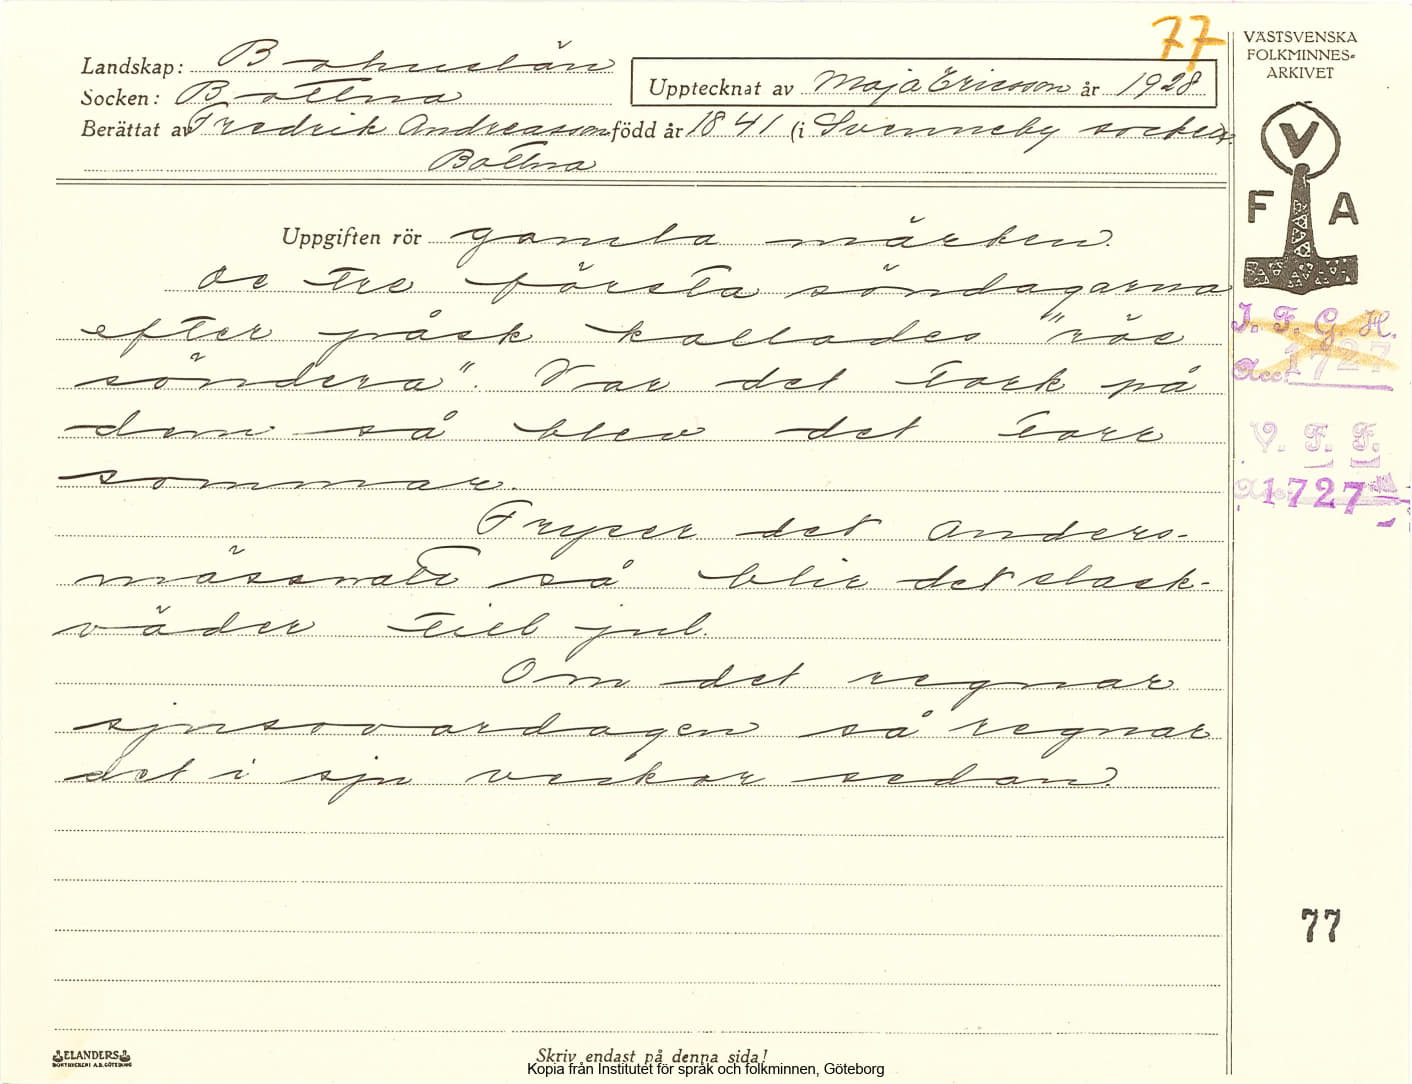 77
Landskap: Bohuslän
Socken: Bottna
Upptecknat av Maja Ericsson år 1928
Berättat av Fredrik Andreasson född år 1841 (i Svenneby socken).
Bottna
VÄSTSVENSKA
FOLKMINNES-
ARKIVET
V
F A
Uppgiften rör gamla märken.
De tre första söndagarna
efter påsk kallades "räe
söndera". Var det tort på
dem så blev det torr
sommar.
Fryser det Anders-
mässnatt så blir det slask-
väder till jul.
Om det regnar
sjusovardagen så regnar
det i sju veckor sedan.
I. F. G. H.
Acc. 1727
V. F. F.
1727
77
ELANDERS
BOKTRYCKERI A.B. GÖTEBORG
Skriv endast på denna sida!
Kopia från Institutet för språk och folkminnen, Göteborg